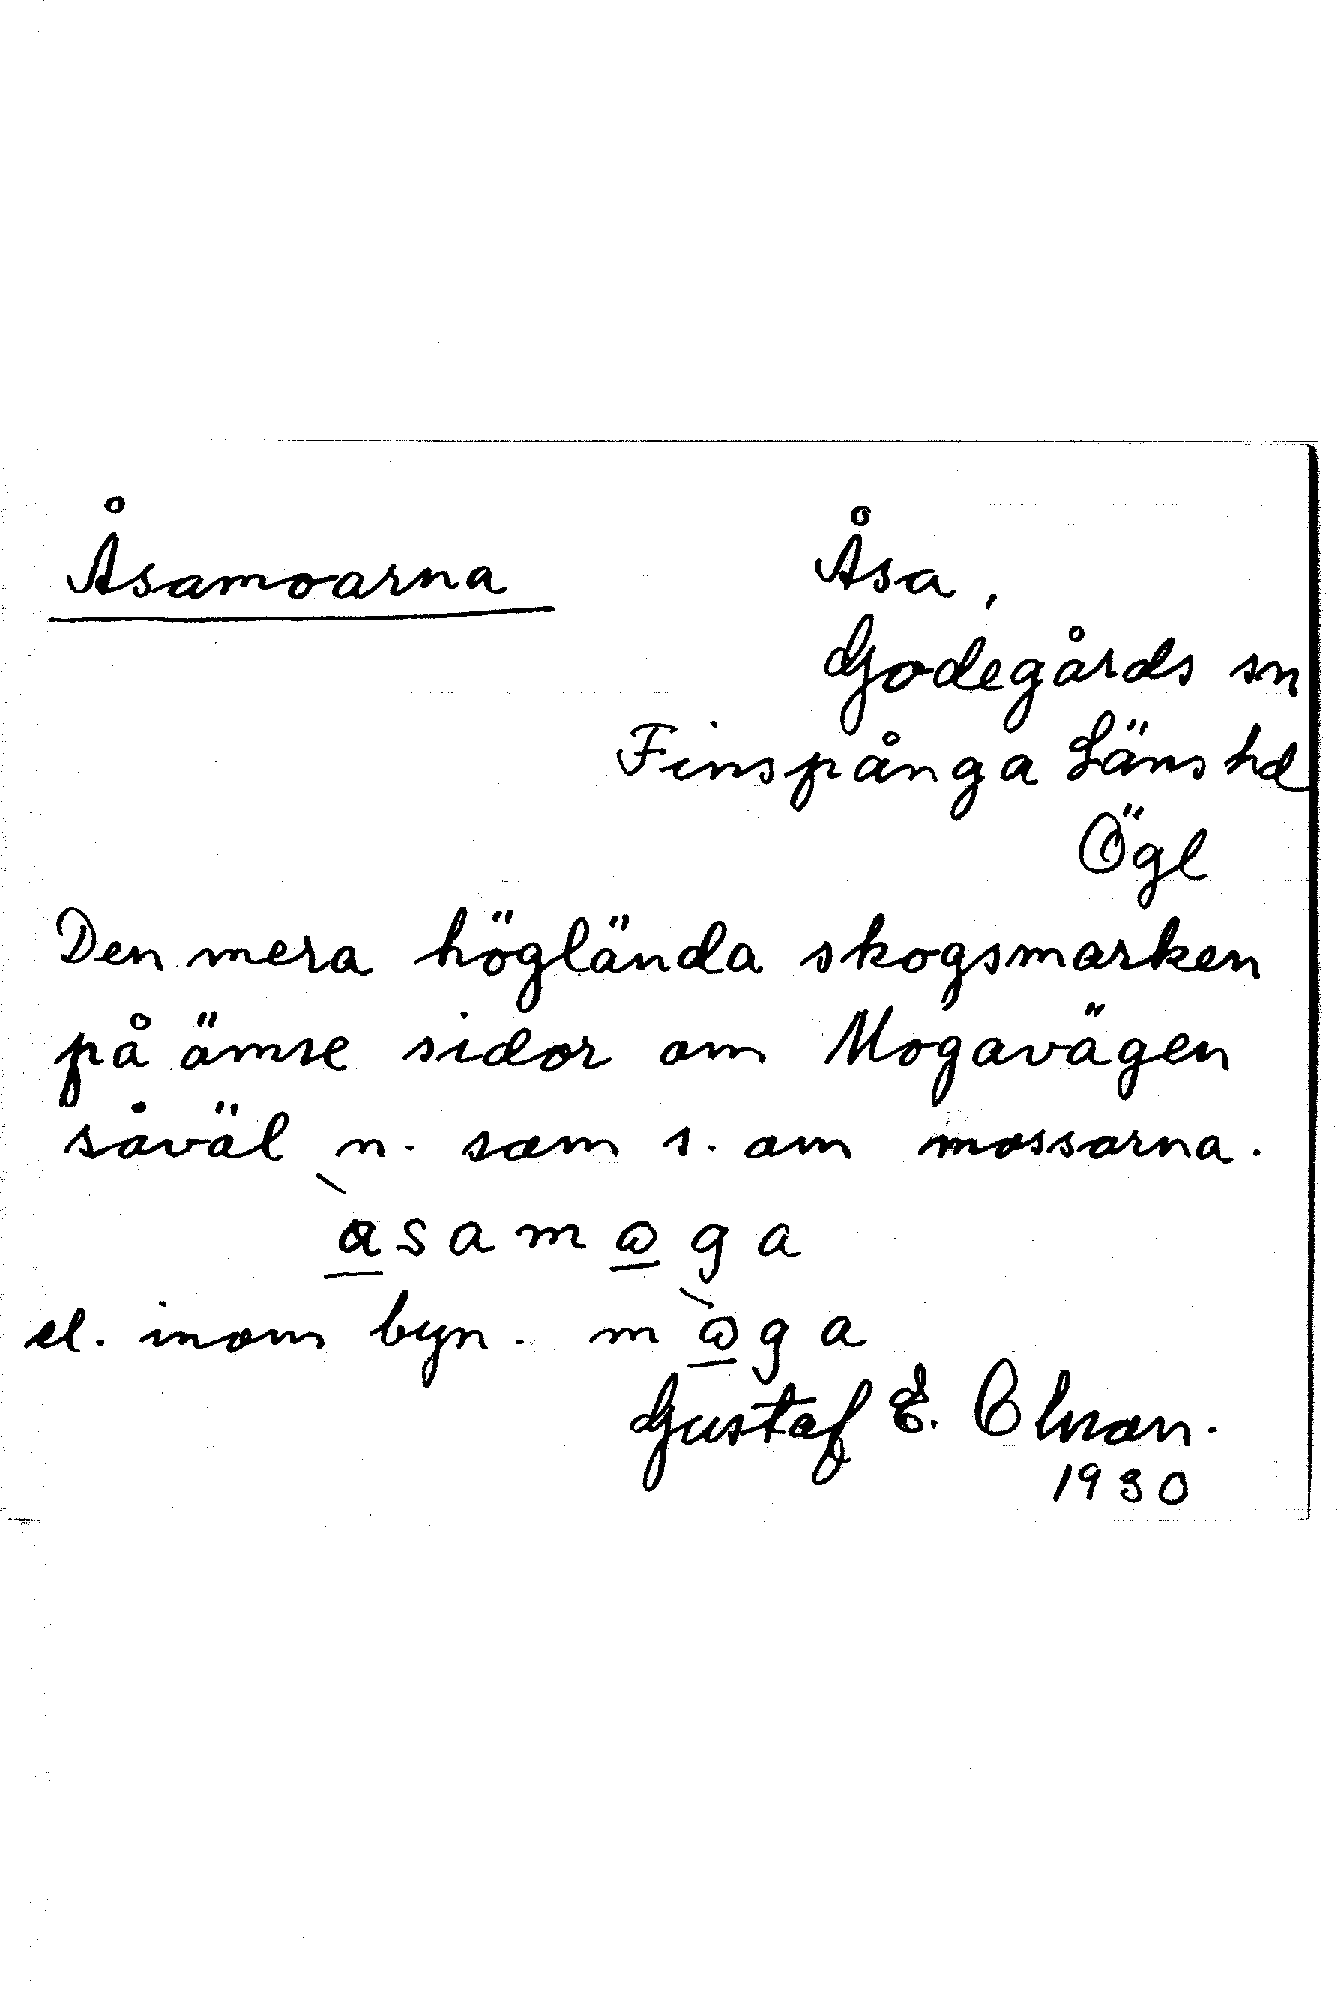 Åsamoarna
Åsa,
Godegårds sn
Finspånga Läns hd
Ögl
Den mera höglända skogsmarken
på ömse sidor om Mogavägen
såväl n. som s. om mossarna.
åsamωga
el. inom byn. mωga
Gustaf E. Olson.
1930